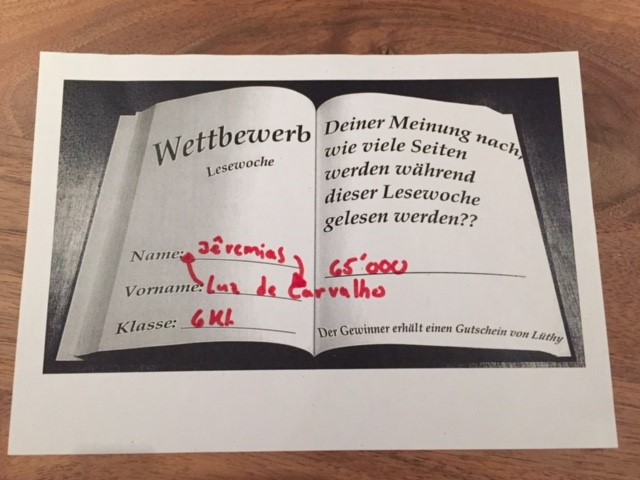 Wettbewerb
Lesewoche
Name: Jêremias
Vorname: Luz de Carvalho
Klasse: 6 Kl.
Deiner Meinung nach,
wie viele Seiten
werden während
dieser Lesewoche
gelesen werden??
65'000
Der Gewinner erhält einen Gutschein von Lüthy